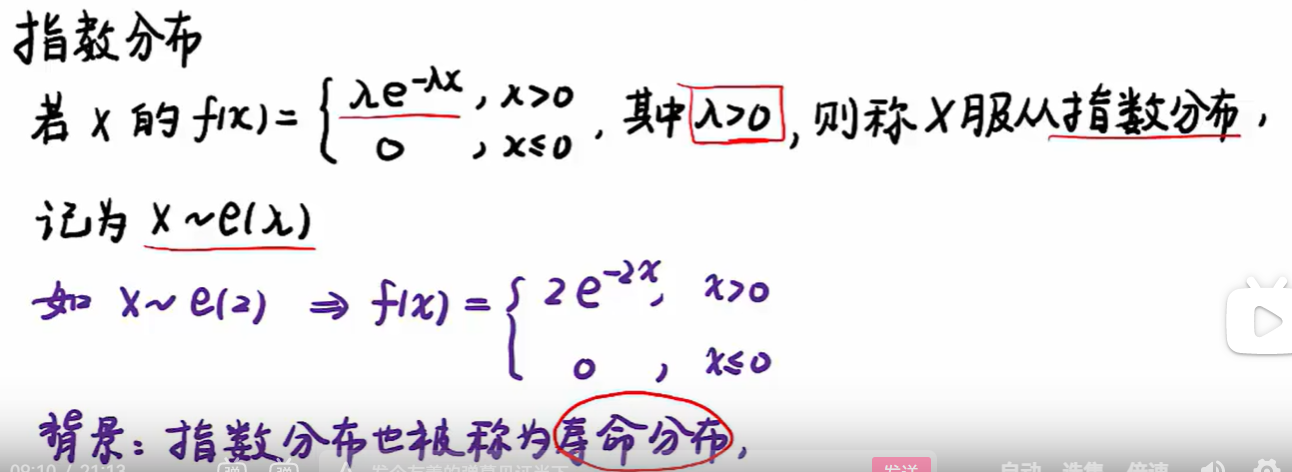 指数分布
若 X 的 f(x) = { λe^{-λx}, x>0 ; 0, x≤0 , 其中 λ>0, 则称 X 服从指数分布,
记为 X ~ e(λ)
如 X ~ e(2) ⇒ f(x) = { 2e^{-2x}, x>0 ; 0, x≤0
背景: 指数分布也被称为寿命分布,
09:10 / 21:13 弹 弹 发个友善的弹幕见证当下 发送 自动 选集 倍速